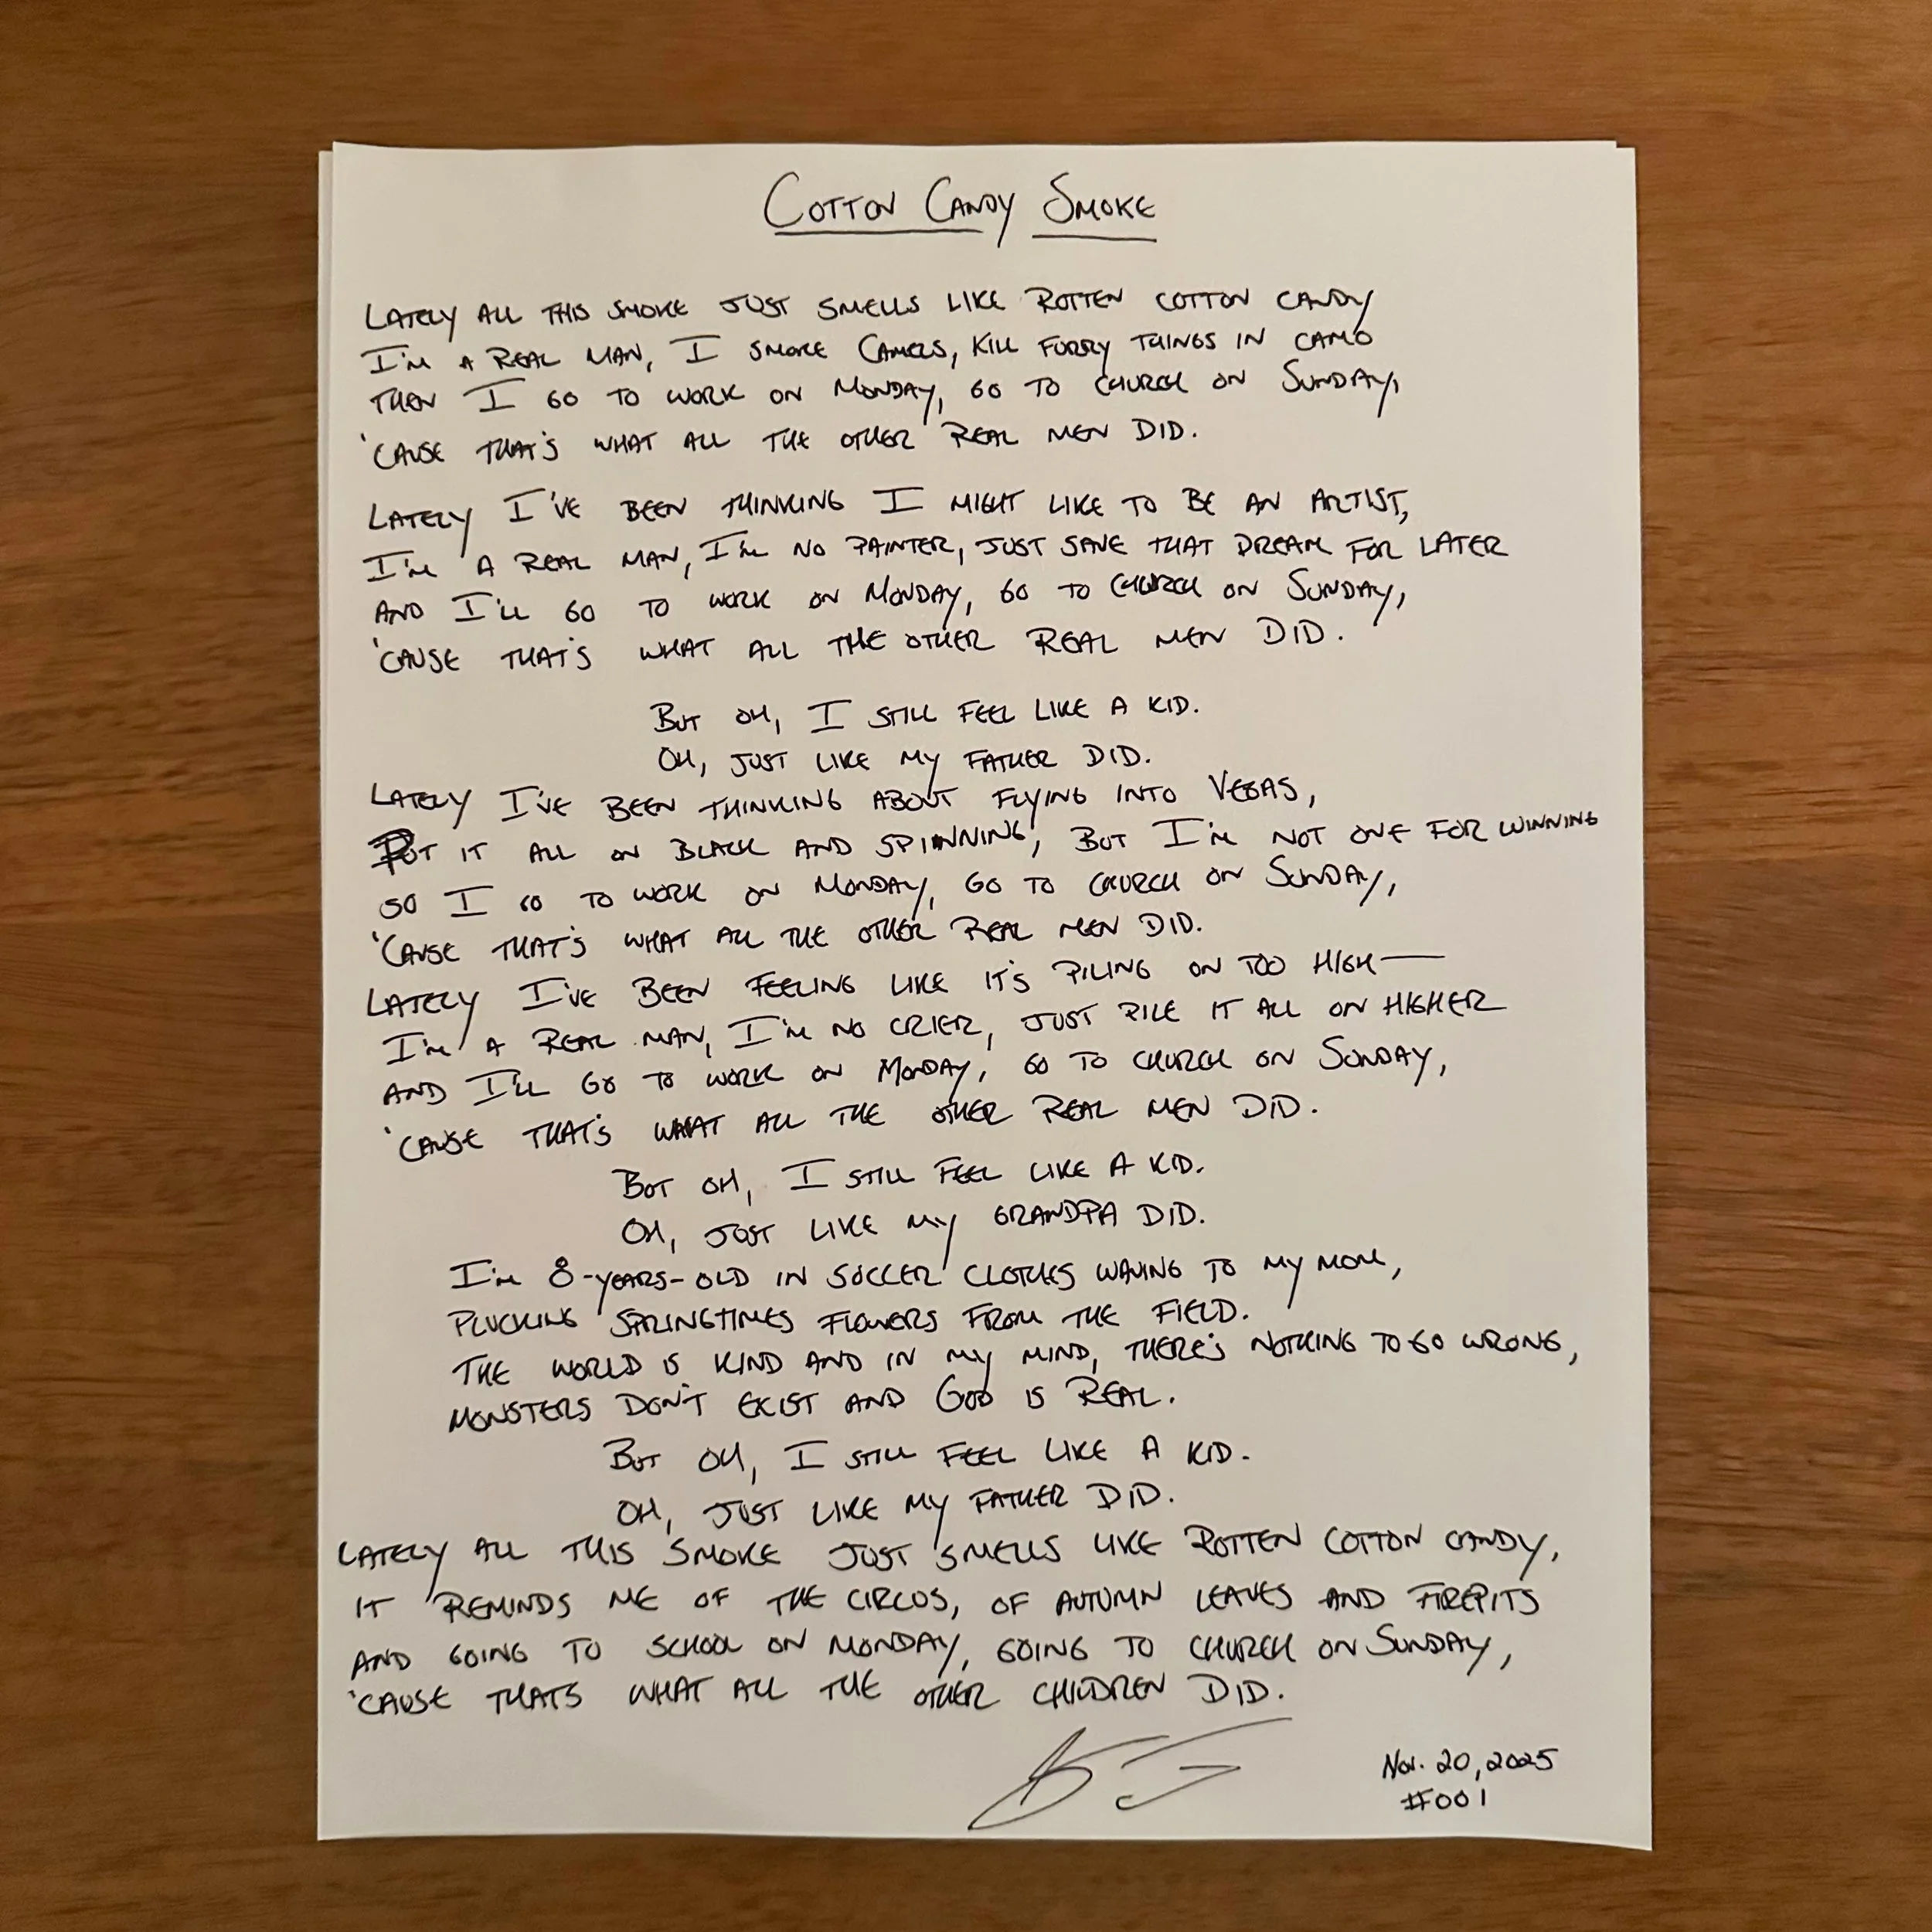 COTTON CANDY SMOKE
LATELY ALL THIS SMOKE JUST SMELLS LIKE ROTTEN COTTON CANDY
I'M A REAL MAN, I SMOKE CAMELS, KILL FURRY THINGS IN CAMO
THEN I GO TO WORK ON MONDAY, GO TO CHURCH ON SUNDAY,
'CAUSE THAT'S WHAT ALL THE OTHER REAL MEN DID.
LATELY I'VE BEEN THINKING I MIGHT LIKE TO BE AN ARTIST,
I'M A REAL MAN, I'M NO PAINTER, JUST SAVE THAT DREAM FOR LATER
AND I'LL GO TO WORK ON MONDAY, GO TO CHURCH ON SUNDAY,
'CAUSE THAT'S WHAT ALL THE OTHER REAL MEN DID.
BUT OH, I STILL FEEL LIKE A KID.
OH, JUST LIKE MY FATHER DID.
LATELY I'VE BEEN THINKING ABOUT FLYING INTO VEGAS,
PUT IT ALL ON BLACK AND SPINNING, BUT I'M NOT ONE FOR WINNING
SO I GO TO WORK ON MONDAY, GO TO CHURCH ON SUNDAY,
'CAUSE THAT'S WHAT ALL THE OTHER REAL MEN DID.
LATELY I'VE BEEN FEELING LIKE IT'S PILING ON TOO HIGH—
I'M A REAL MAN, I'M NO CRIER, JUST PILE IT ALL ON HIGHER
AND I'LL GO TO WORK ON MONDAY, GO TO CHURCH ON SUNDAY,
'CAUSE THAT'S WHAT ALL THE OTHER REAL MEN DID.
BUT OH, I STILL FEEL LIKE A KID.
OH, JUST LIKE MY GRANDPA DID.
I'M 8-YEARS-OLD IN SOCCER CLOTHES WAVING TO MY MOM,
PLUCKING SPRINGTIMES FLOWERS FROM THE FIELD.
THE WORLD IS KIND AND IN MY MIND, THERE'S NOTHING TO GO WRONG,
MONSTERS DON'T EXIST AND GOD IS REAL.
BUT OH, I STILL FEEL LIKE A KID.
OH, JUST LIKE MY FATHER DID.
LATELY ALL THIS SMOKE JUST SMELLS LIKE ROTTEN COTTON CANDY,
IT REMINDS ME OF THE CIRCUS, OF AUTUMN LEAVES AND FIREPITS
AND GOING TO SCHOOL ON MONDAY, GOING TO CHURCH ON SUNDAY,
'CAUSE THATS WHAT ALL THE OTHER CHILDREN DID.
Nov. 20, 2025
#001